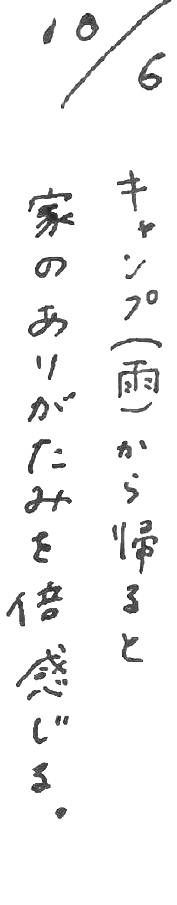 10/6
キャンプ(雨)から帰ると
家のありがたみを倍感じる.